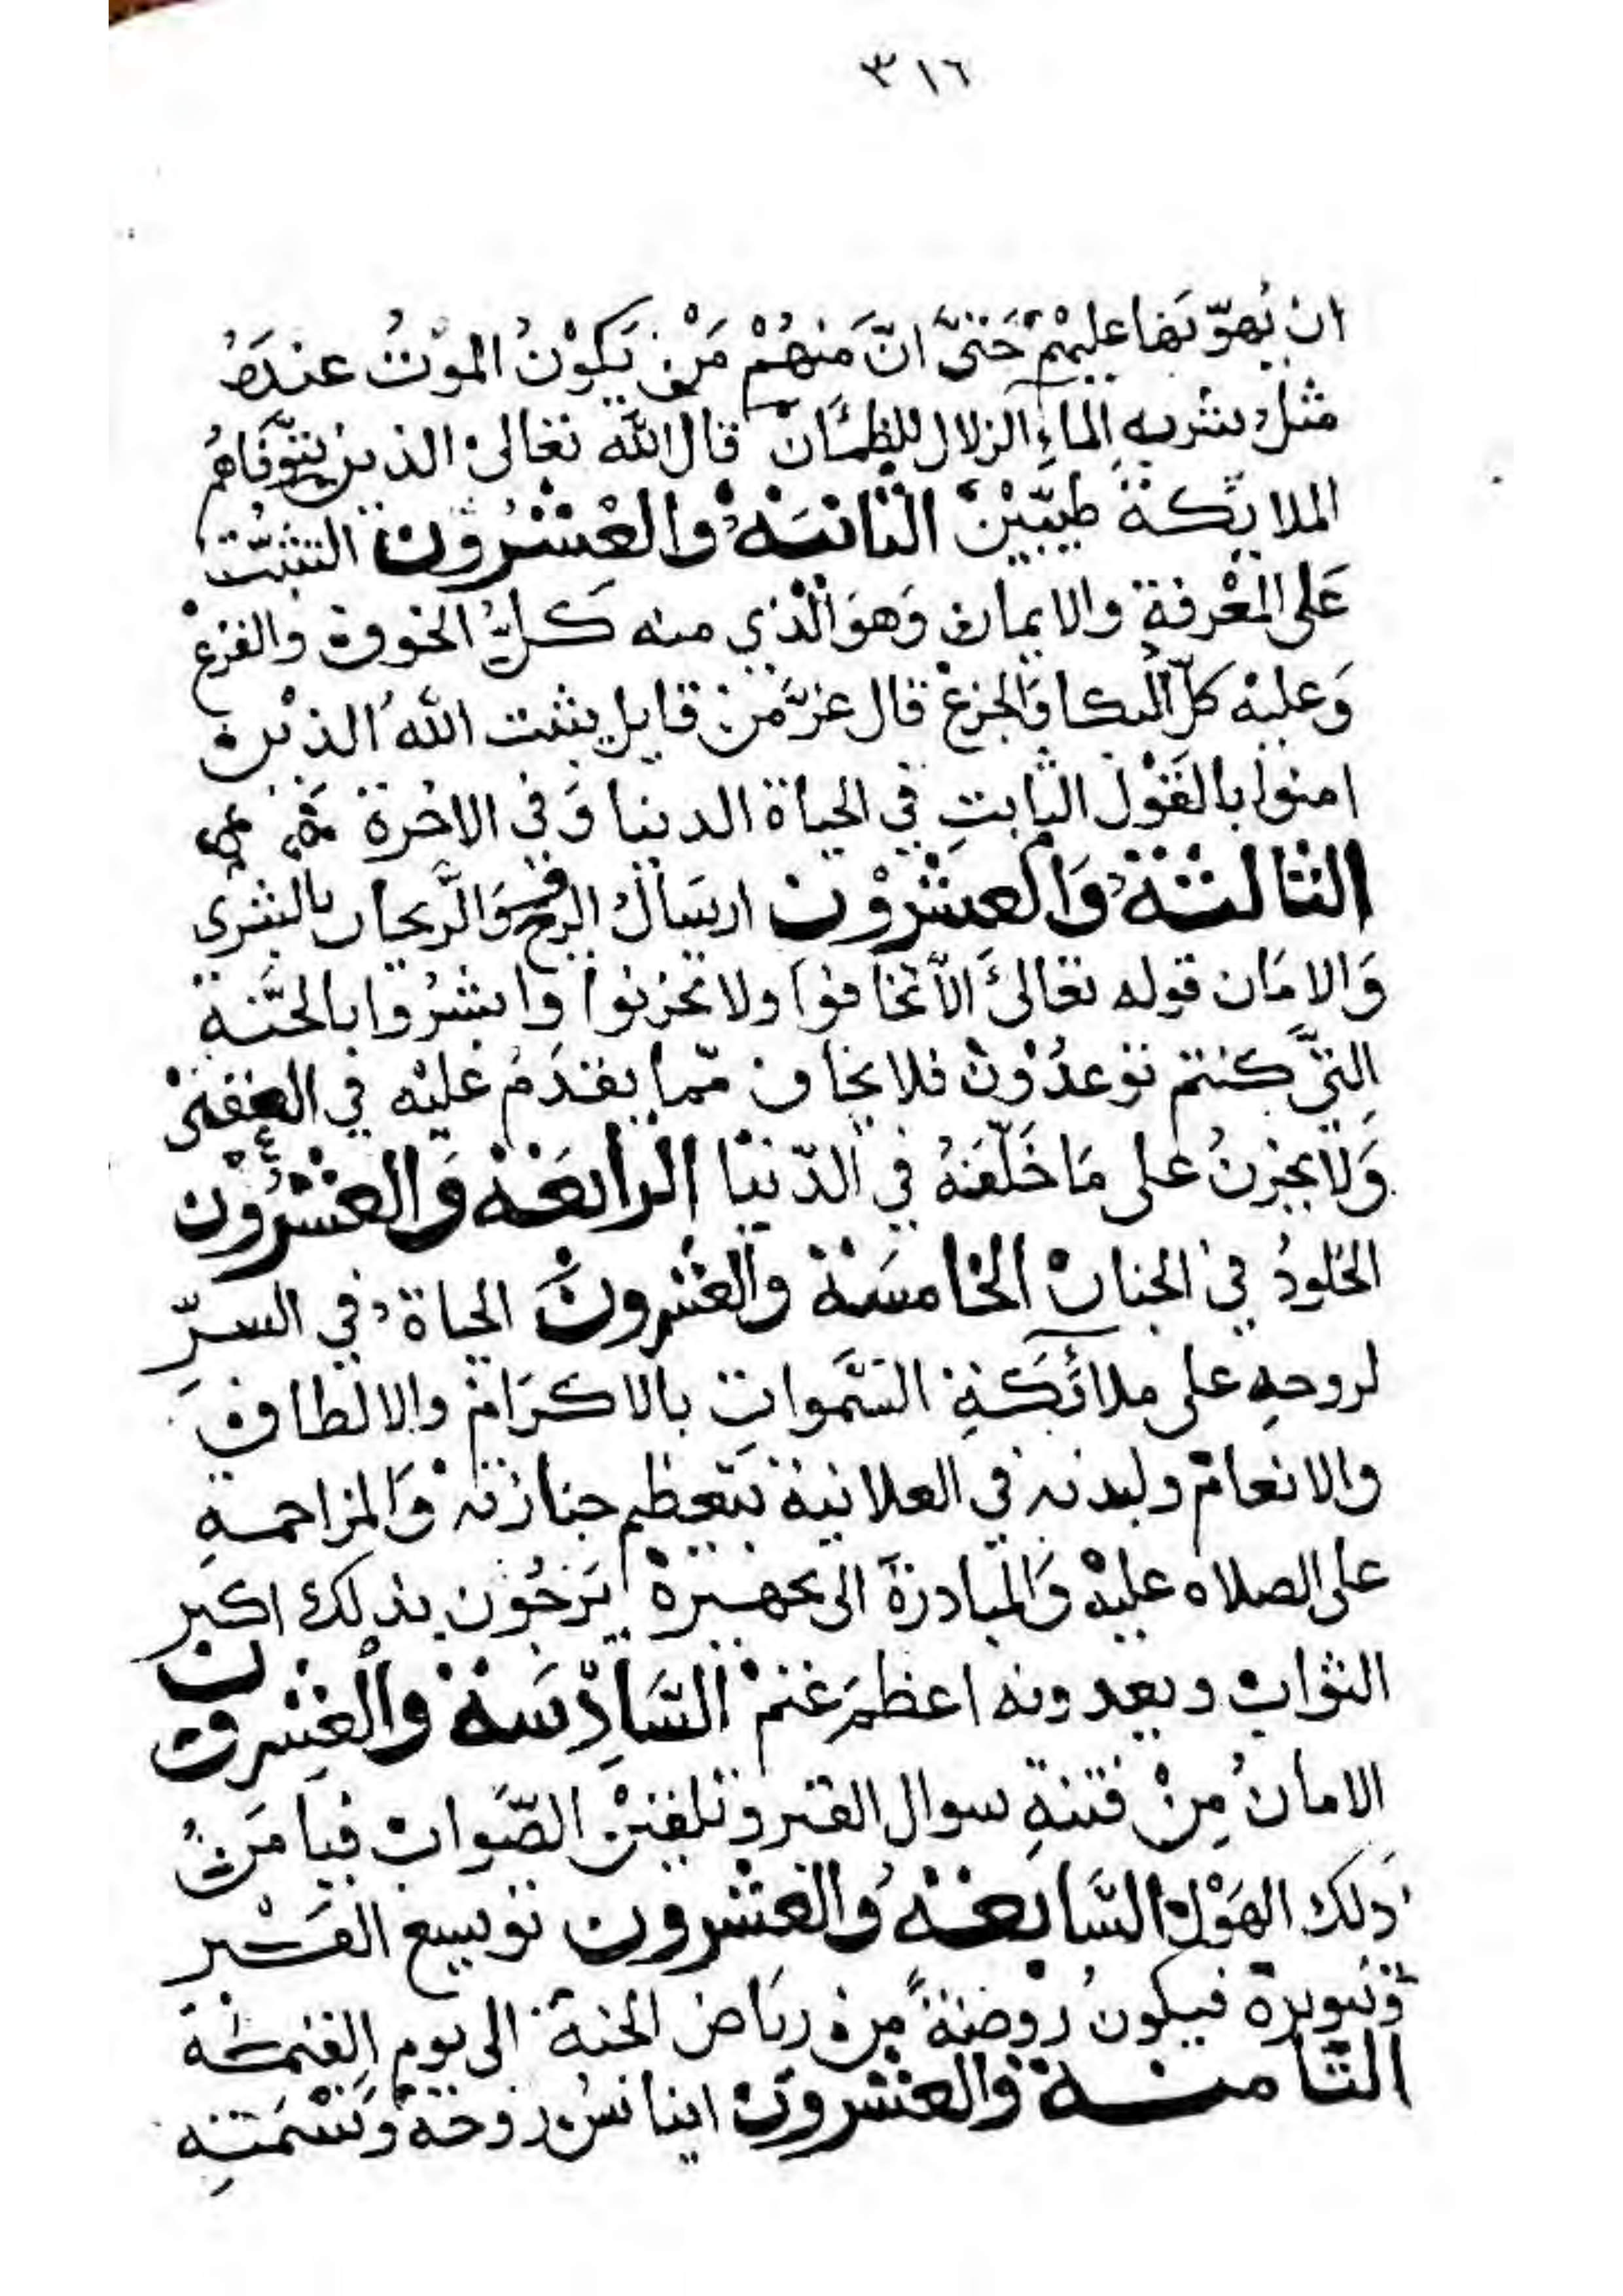 ٣١٦
ان يُهوّنها عليهمْ حَتىَّ انّ مَنهُمْ مَنْ يَكوْنُ الموْتُ عندَهُ
مثلُ شربه الماءِ الزلال للظمَئَانْ قال الله تعالىْ الذين تتوَّفاهمُ
الملايكة طيبّيْنْ الثانيَهْ والعْشرُوْن التثبّتْ
عَلى المعْرفةِ والايمان وَهوَ الّذي منه كلُّ الخوف والفزعْ
وَعليْه كلّ البكا وَالجزعْ قال عزَّ منْ قايل يثبت اللهُ الذيْن
امنوا بالقَوْل الثابتِ في الحياة الدنيا وَفي الاخرة
الثالثةُ وَالعشرْوْن ارسَالُ الروح وَالرَّيحان بالبشرى
وَالامَان قوله تعَالىَ الاَّ تخافوا ولا تحزنوا وابشرُوا بالجَّنةِ
التيَّ كنتم توعدُوْنْ فلا يخاف ممّا يقدَمُ عَليْه في العقبىْ
وَلا يحزنُ على مَا خَلّفَهُ في الدّنيَا الرابعَهْ وَالعشرُوْن
الخلودُ فيْ الجنانْ الخامسَة والعْشرونْ الحياة في السرِّ
لروحِهِ على ملائكةِ السَّمواتِ بالاكرَامْ والالطافْ
والانعامْ ولبدنه في العلانية بتعظيم جنازته وَالمزاحمةِ
على الصلاه عليْهْ وَالمبادرَة الى تجهيزهْ يَرجُوْن بذلك اكبر
الثوابْ ويعدونه اعظمَ غنمْ السَّادِسَة والعْشرون
الامانُ مِنْ فتنةِ سوال القبر وتلقينْ الصّوابْ فيامَنُ
ذَلك الهَوْل السَّابعَهْ والعْشرون توسيع القبْر
وَتنويرهْ فيكونُ روضةً منْ رياض الجنة الى يوم القيمة
الثامنة والعشرون ايناسُ روحَهُ وَنَسْمَتِه